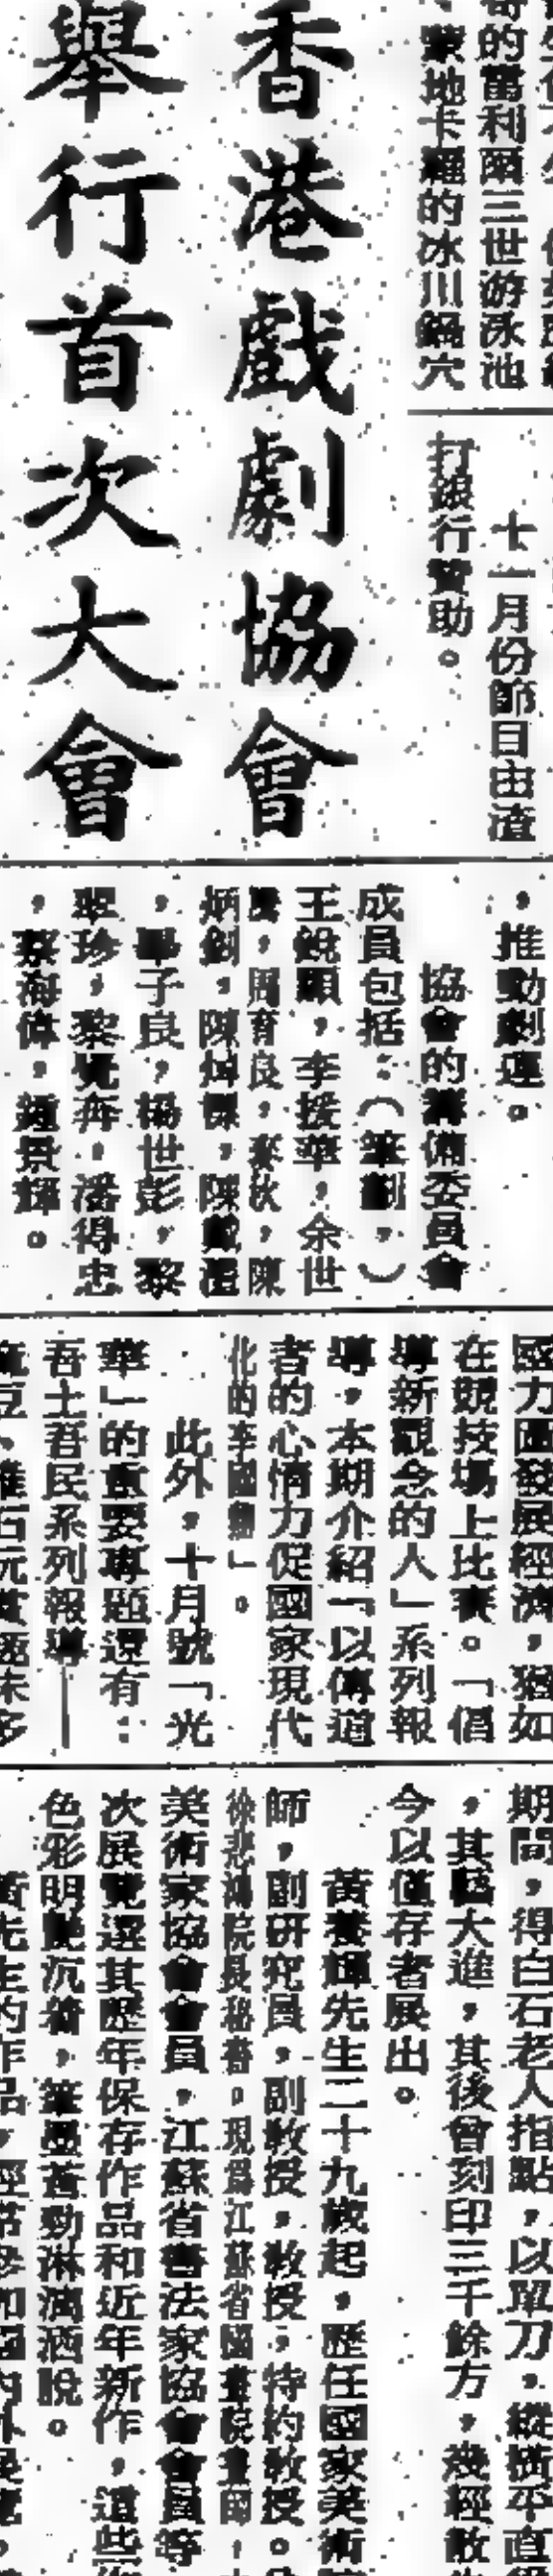 的富利南三世游泳池
地卡羅的冰川鍋穴
十一月份節目由渣
打銀行贊助。
香港戲劇協會
舉行首次大會
，推動劇運。
協會的籌備委員會
成員包括：（筆劃，）
王銳顯，李援華，余世
騫，周育良，麥秋，陳
炳釗，陳焯
，子良，楊世彭，黎
翠珍，黎覺奔，潘得忠
，蔡海偉，鍾景輝。
國力匯發展經濟，猶如
在競技場上比賽。「倡
導新觀念的人」系列報
導，本期介紹「以傳道
者的心情力促國家現代
化的李國鼎」。
此外，十月號「光
華」的重要專題還有：
吾土吾民系列報導——
期間，得白石老人指點，以單刀，縱橫平直
，其藝大進，其後曾刻印三千餘方，幾經散
今以僅存者展出。
黃養輝先生二十九歲起，歷任國家美術
師，副研究員，副教授，教授，特約教授。
徐悲鴻院長秘書。現為江蘇省國畫院畫師，
美術家協會會員，江蘇省書法家協會會員等
次展覽選其歷年保存作品和近年新作，這些
色彩明艷沉着，筆墨蒼勁淋漓洒脫。
黃先生的作品，經常參加國內外展覽，